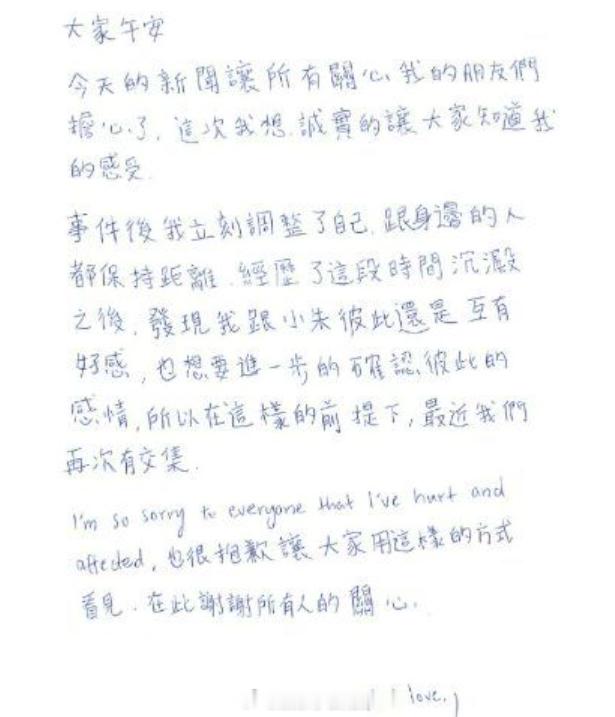 大家午安
今天的新聞讓所有關心我的朋友們
擔心了，這次我想誠實的讓大家知道我
的感受.
事件後我立刻調整了自己，跟身邊的人
都保持距離．經歷了這段時間沉澱
之後，發現我跟小朱彼此還是互有
好感，也想要進一步的確認彼此的
感情，所以在這樣的前提下，最近我們
再次有交集．
I'm so sorry to everyone that I've hurt and
affected，也很抱歉讓大家用這樣的方式
看見．在此謝謝所有人的關心．
love,